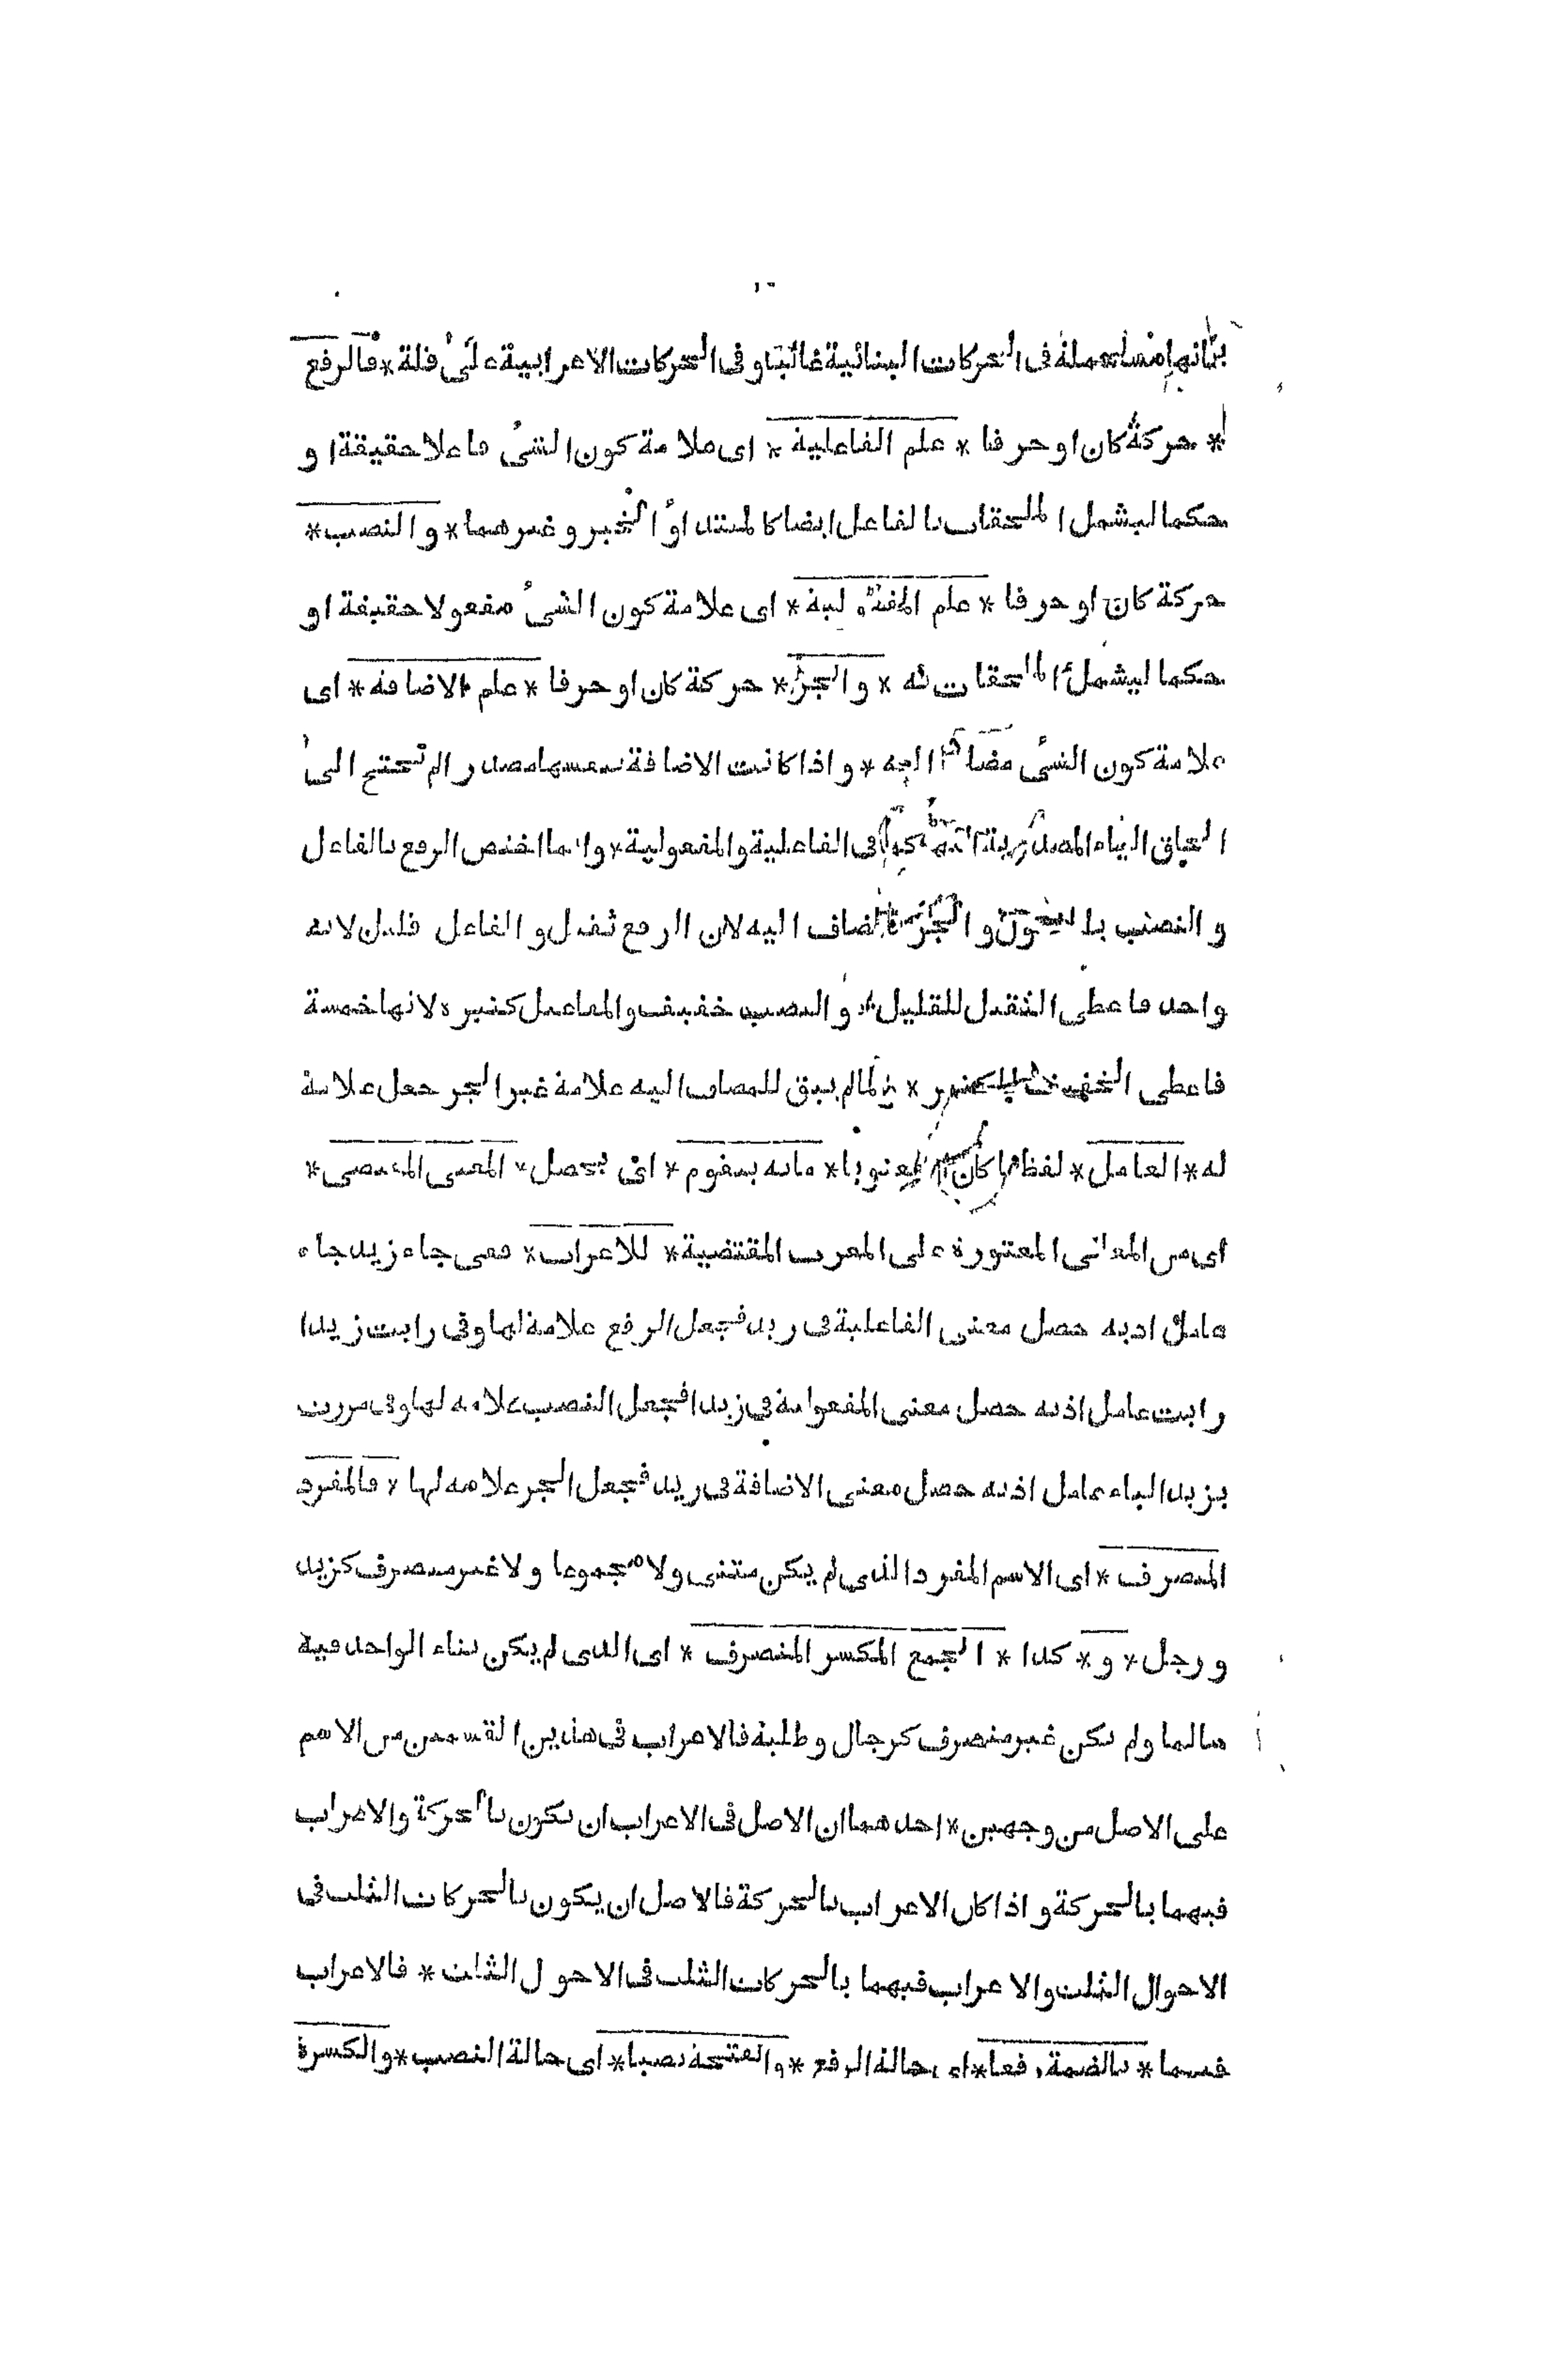 فانها مستعملة فى الحركات البنائية غالبا و فى الحركات الاعرابية على قلة * فالرفع
* حركة كان او حرفا * علم الفاعلية * اى علامة كون الشئ فاعلا حقيقة او
حكما ليشمل الملحقات بالفاعل ايضا كالمبتدا و الخبر و غيرهما * و النصب *
حركة كان او حرفا * علم المفعولية * اى علامة كون الشئ مفعولا حقيقة او
حكما ليشمل الملحقات به * و الجر * حركة كان او حرفا * علم الاضافة * اى
علامة كون الشئ مضافا اليه * و اذا كانت الاضافة بنفسها مصدرا لم تحتج الى
الحاق الياء المصدرية اليها كما فى الفاعلية و المفعولية * و انما اختص الرفع بالفاعل
و النصب بالمفعول و الجر بالمضاف اليه لان الرفع ثقيل و الفاعل قليل لانه
واحد فاعطى الثقيل للقليل * و النصب خفيف و المفاعيل كثيرة لانها خمسة
فاعطى الخفيف للكثير * و لما لم يبق للمضاف اليه علامة غير الجر جعل علامة
له * العامل * لفظيا كان او معنويا * ما به يتقوم * اى يحصل * المعنى المقتضى *
اى من المعانى المعتورة على المعرب المقتضية * للاعراب * ففى جاء زيد جاء
عامل اذ به حصل معنى الفاعلية فى زيد فجعل الرفع علامة لها و فى رايت زيدا
رايت عامل اذ به حصل معنى المفعولية فى زيدا فجعل النصب علامة لها و فى مررت
بزيد الباء عامل اذ به حصل معنى الاضافة فى زيد فجعل الجر علامة لها * فالمفرد
المنصرف * اى الاسم المفرد الذى لم يكن مثنى و لا مجموعا و لا غير منصرف كزيد
و رجل * و * كذا * الجمع المكسر المنصرف * اى الذى لم يكن بناء الواحد فيه
سالما و لم يكن غير منصرف كرجال و طلبة فالاعراب فى هذين القسمين من الاسم
على الاصل من وجهين * احدهما ان الاصل فى الاعراب ان يكون بالحركة و الاعراب
فيهما بالحركة و اذا كان الاعراب بالحركة فالاصل ان يكون بالحركات الثلث فى
الاحوال الثلث و الاعراب فيهما بالحركات الثلث فى الاحول الثلث * فالاعراب
فيهما * بالضمة رفعا * اى حالة الرفع * و الفتحة نصبا * اى حالة النصب * و الكسرة